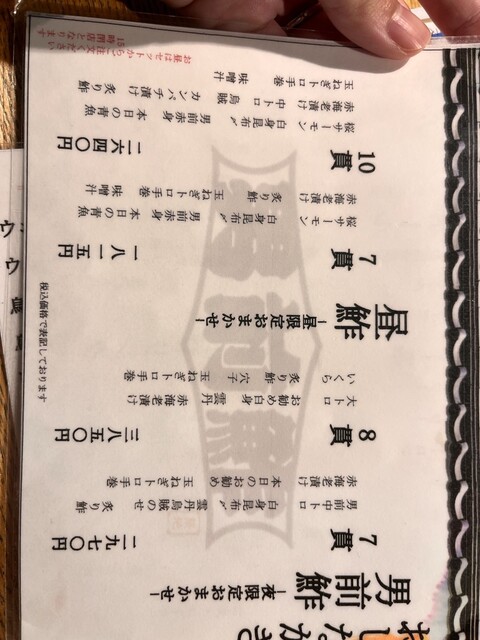 おしながき
男前鮨
-夜限定おまかせ-
7貫
二九七〇円
男前中トロ 白身昆布〆 雲丹烏賊のせ 炙り鮨
赤海老漬け 本日のお勧め 玉ねぎトロ手巻
8貫
三八五〇円
大トロ お勧め白身 雲丹 赤海老漬け
いくら 炙り鮨 穴子 玉ねぎトロ手巻
昼鮨
-昼限定おまかせ-
7貫
一八一五円
桜サーモン 白身昆布〆 男前赤身 本日の青魚
赤海老漬け 炙り鮨 玉ねぎトロ手巻 味噌汁
10貫
二六四〇円
桜サーモン 白身昆布〆 男前赤身 本日の青魚
赤海老漬け 中トロ 烏賊 カンパチ漬け 炙り鮨
玉ねぎトロ手巻 味噌汁
お昼はセットからご注文ください
15時閉店となります
税込価格で表記しております
男前鮨